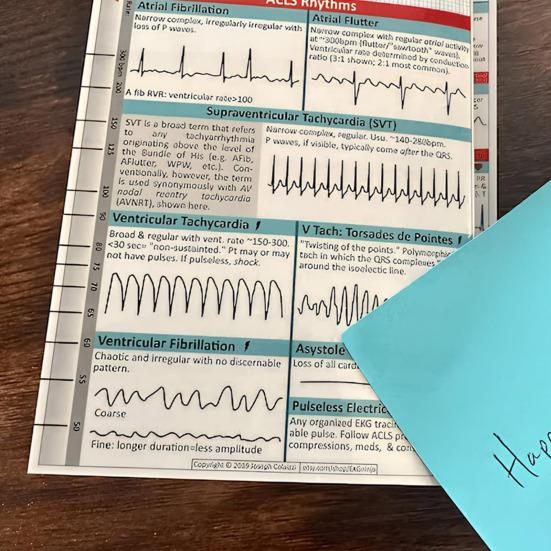 ACLS Rhythms
Atrial Fibrillation
Narrow complex, irregularly irregular with
loss of P waves.
A fib RVR: ventricular rate>100
Atrial Flutter
Narrow complex with regular atrial activity
at ~300bpm (flutter/"sawtooth" waves).
Ventricular rate determined by conduction
ratio (3:1 shown; 2:1 most common).
Supraventricular Tachycardia (SVT)
SVT is a broad term that refers
to any tachyarrhythmia
originating above the level of
the Bundle of His (e.g. AFib,
AFlutter, WPW, etc.). Con-
ventionally, however, the term
is used synonymously with AV
nodal reentry tachycardia
(AVNRT), shown here.
Narrow complex, regular. Usu. ~140-280bpm.
P waves, if visible, typically come after the QRS.
Ventricular Tachycardia
Broad & regular with vent. rate ~150-300.
<30 sec= "non-sustained." Pt may or may
not have pulses. If pulseless, shock.
V Tach: Torsades de Pointes
"Twisting of the points." Polymorphic
tach in which the QRS complexes
around the isoelectric line.
Ventricular Fibrillation
Chaotic and irregular with no discernable
pattern.
Coarse
Fine: longer duration=less amplitude
Asystole
Loss of all
Pulseless
Any organized EKG
able pulse. Follow ACLS
compressions, meds, &
Copyright © 2019 Joseph Colaizzi
300 bpm
200
150
125
100
90
80
75
70
65
60
55
50